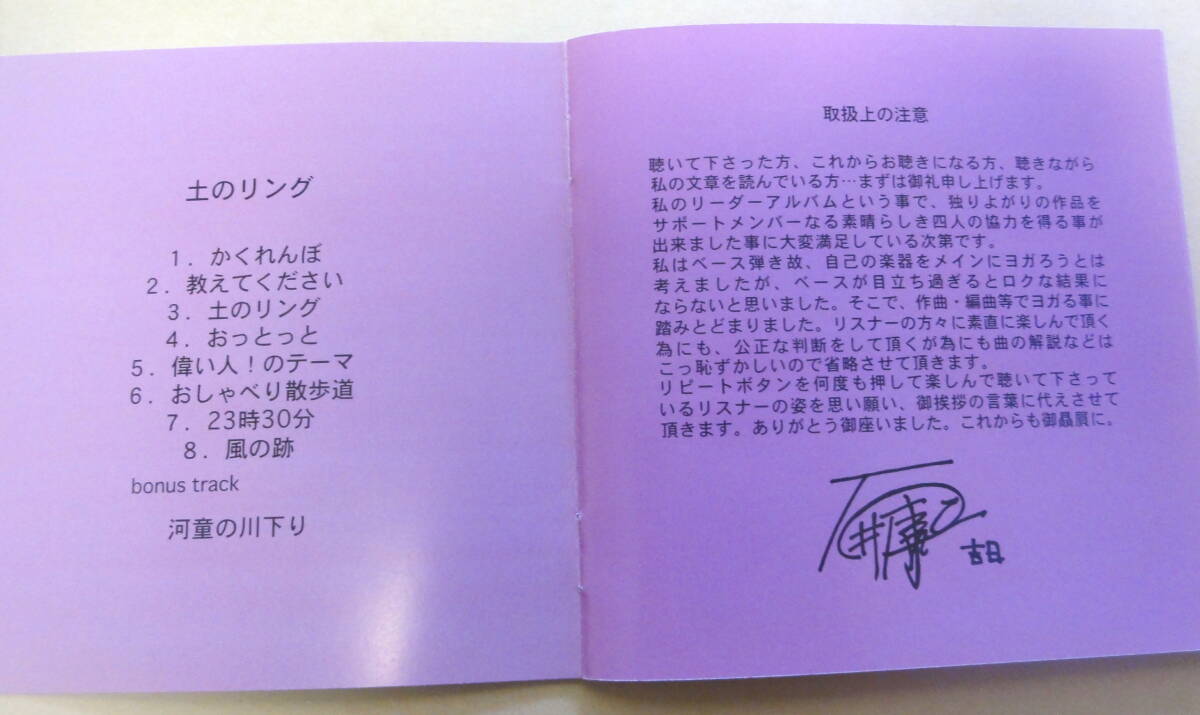 土のリング
1．かくれんぼ
2．教えてください
3．土のリング
4．おっとっと
5．偉い人！のテーマ
6．おしゃべり散歩道
7．23時30分
8．風の跡
bonus track
河童の川下り
取扱上の注意
聴いて下さった方、これからお聴きになる方、聴きながら
私の文章を読んでいる方…まずは御礼申し上げます。
私のリーダーアルバムという事で、独りよがりの作品を
サポートメンバーなる素晴らしき四人の協力を得る事が
出来ました事に大変満足している次第です。
私はベース弾き故、自己の楽器をメインにヨガろうとは
考えましたが、ベースが目立ち過ぎるとロクな結果に
ならないと思いました。そこで、作曲・編曲等でヨガる事に
踏みとどまりました。リスナーの方々に素直に楽しんで頂く
為にも、公正な判断をして頂くが為にも曲の解説などは
こっ恥ずかしいので省略させて頂きます。
リピートボタンを何度も押して楽しんで聴いて下さって
いるリスナーの姿を思い願い、御挨拶の言葉に代えさせて
頂きます。ありがとう御座いました。これからも御贔屓に。